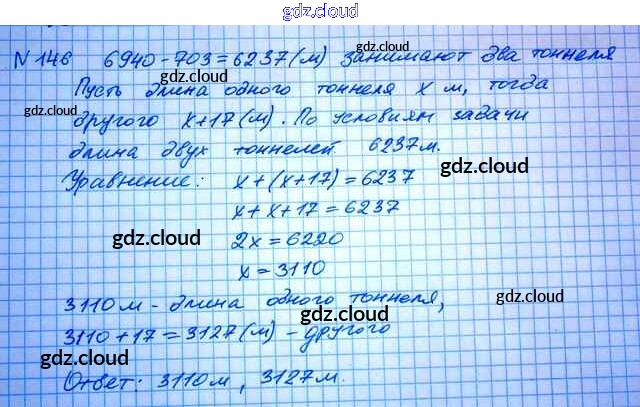 gdz.cloud
N 146 6940-703=6237(м) занимают два тоннеля
Пусть длина одного тоннеля x м, тогда
gdz.cloud
другого x+17(м). По условиям задачи
длина двух тоннелей 6237м.
gdz.cloud
Уравнение: x+(x+17)=6237
x+x+17=6237
gdz.cloud
2x=6220
gdz.cloud
x=3110
3110м-длина одного тоннеля,
gdz.cloud
3110+17=3127(м)-другого
gdz.cloud
Ответ: 3110м, 3127м.
gdz.cloud